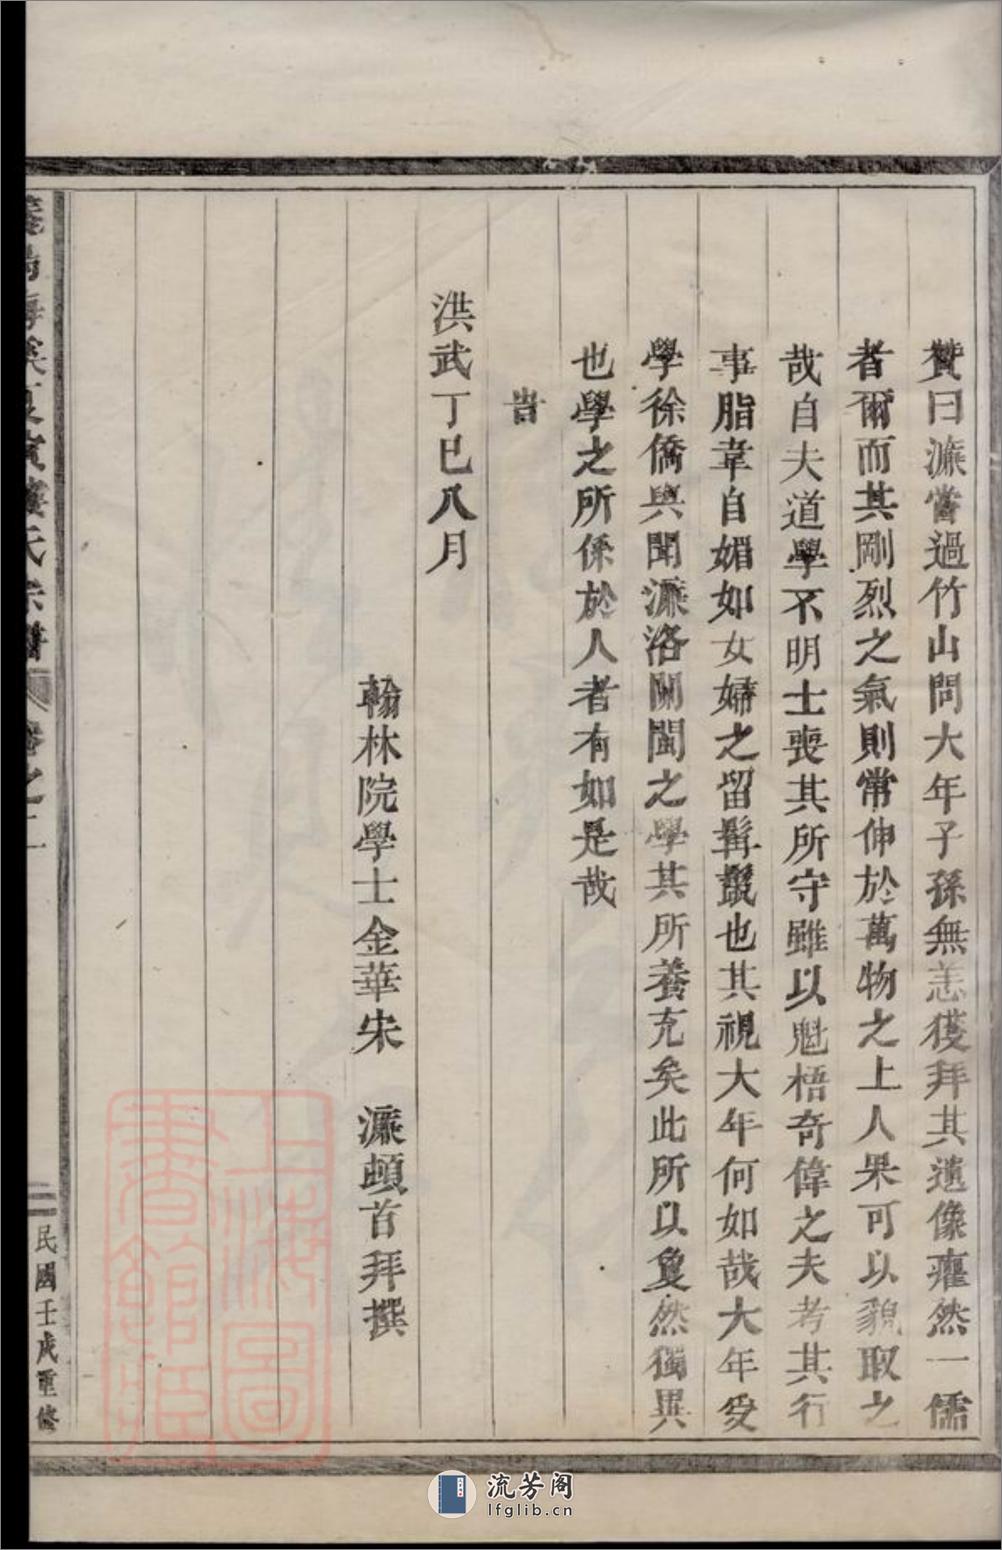 贊曰濂嘗過竹山問大年子孫無恙獲拜其遺像癯然一儒
者爾而其剛烈之氣則常伸於萬物之上人果可以貌取之
哉自夫道學不明士喪其所守雖以魁梧奇偉之夫考其行
事脂韋自媚如女婦之留髯鬣也其視大年何如哉大年受
學徐僑與聞濂洛關閩之學其所養充矣此所以敻然獨異
也學之所係於人者有如是哉
旹
洪武丁巳八月
翰林院學士金華宋 濂頓首拜撰
卷之二
民國壬戌重修
上海圖書館藏
流芳阁
lfglib.cn